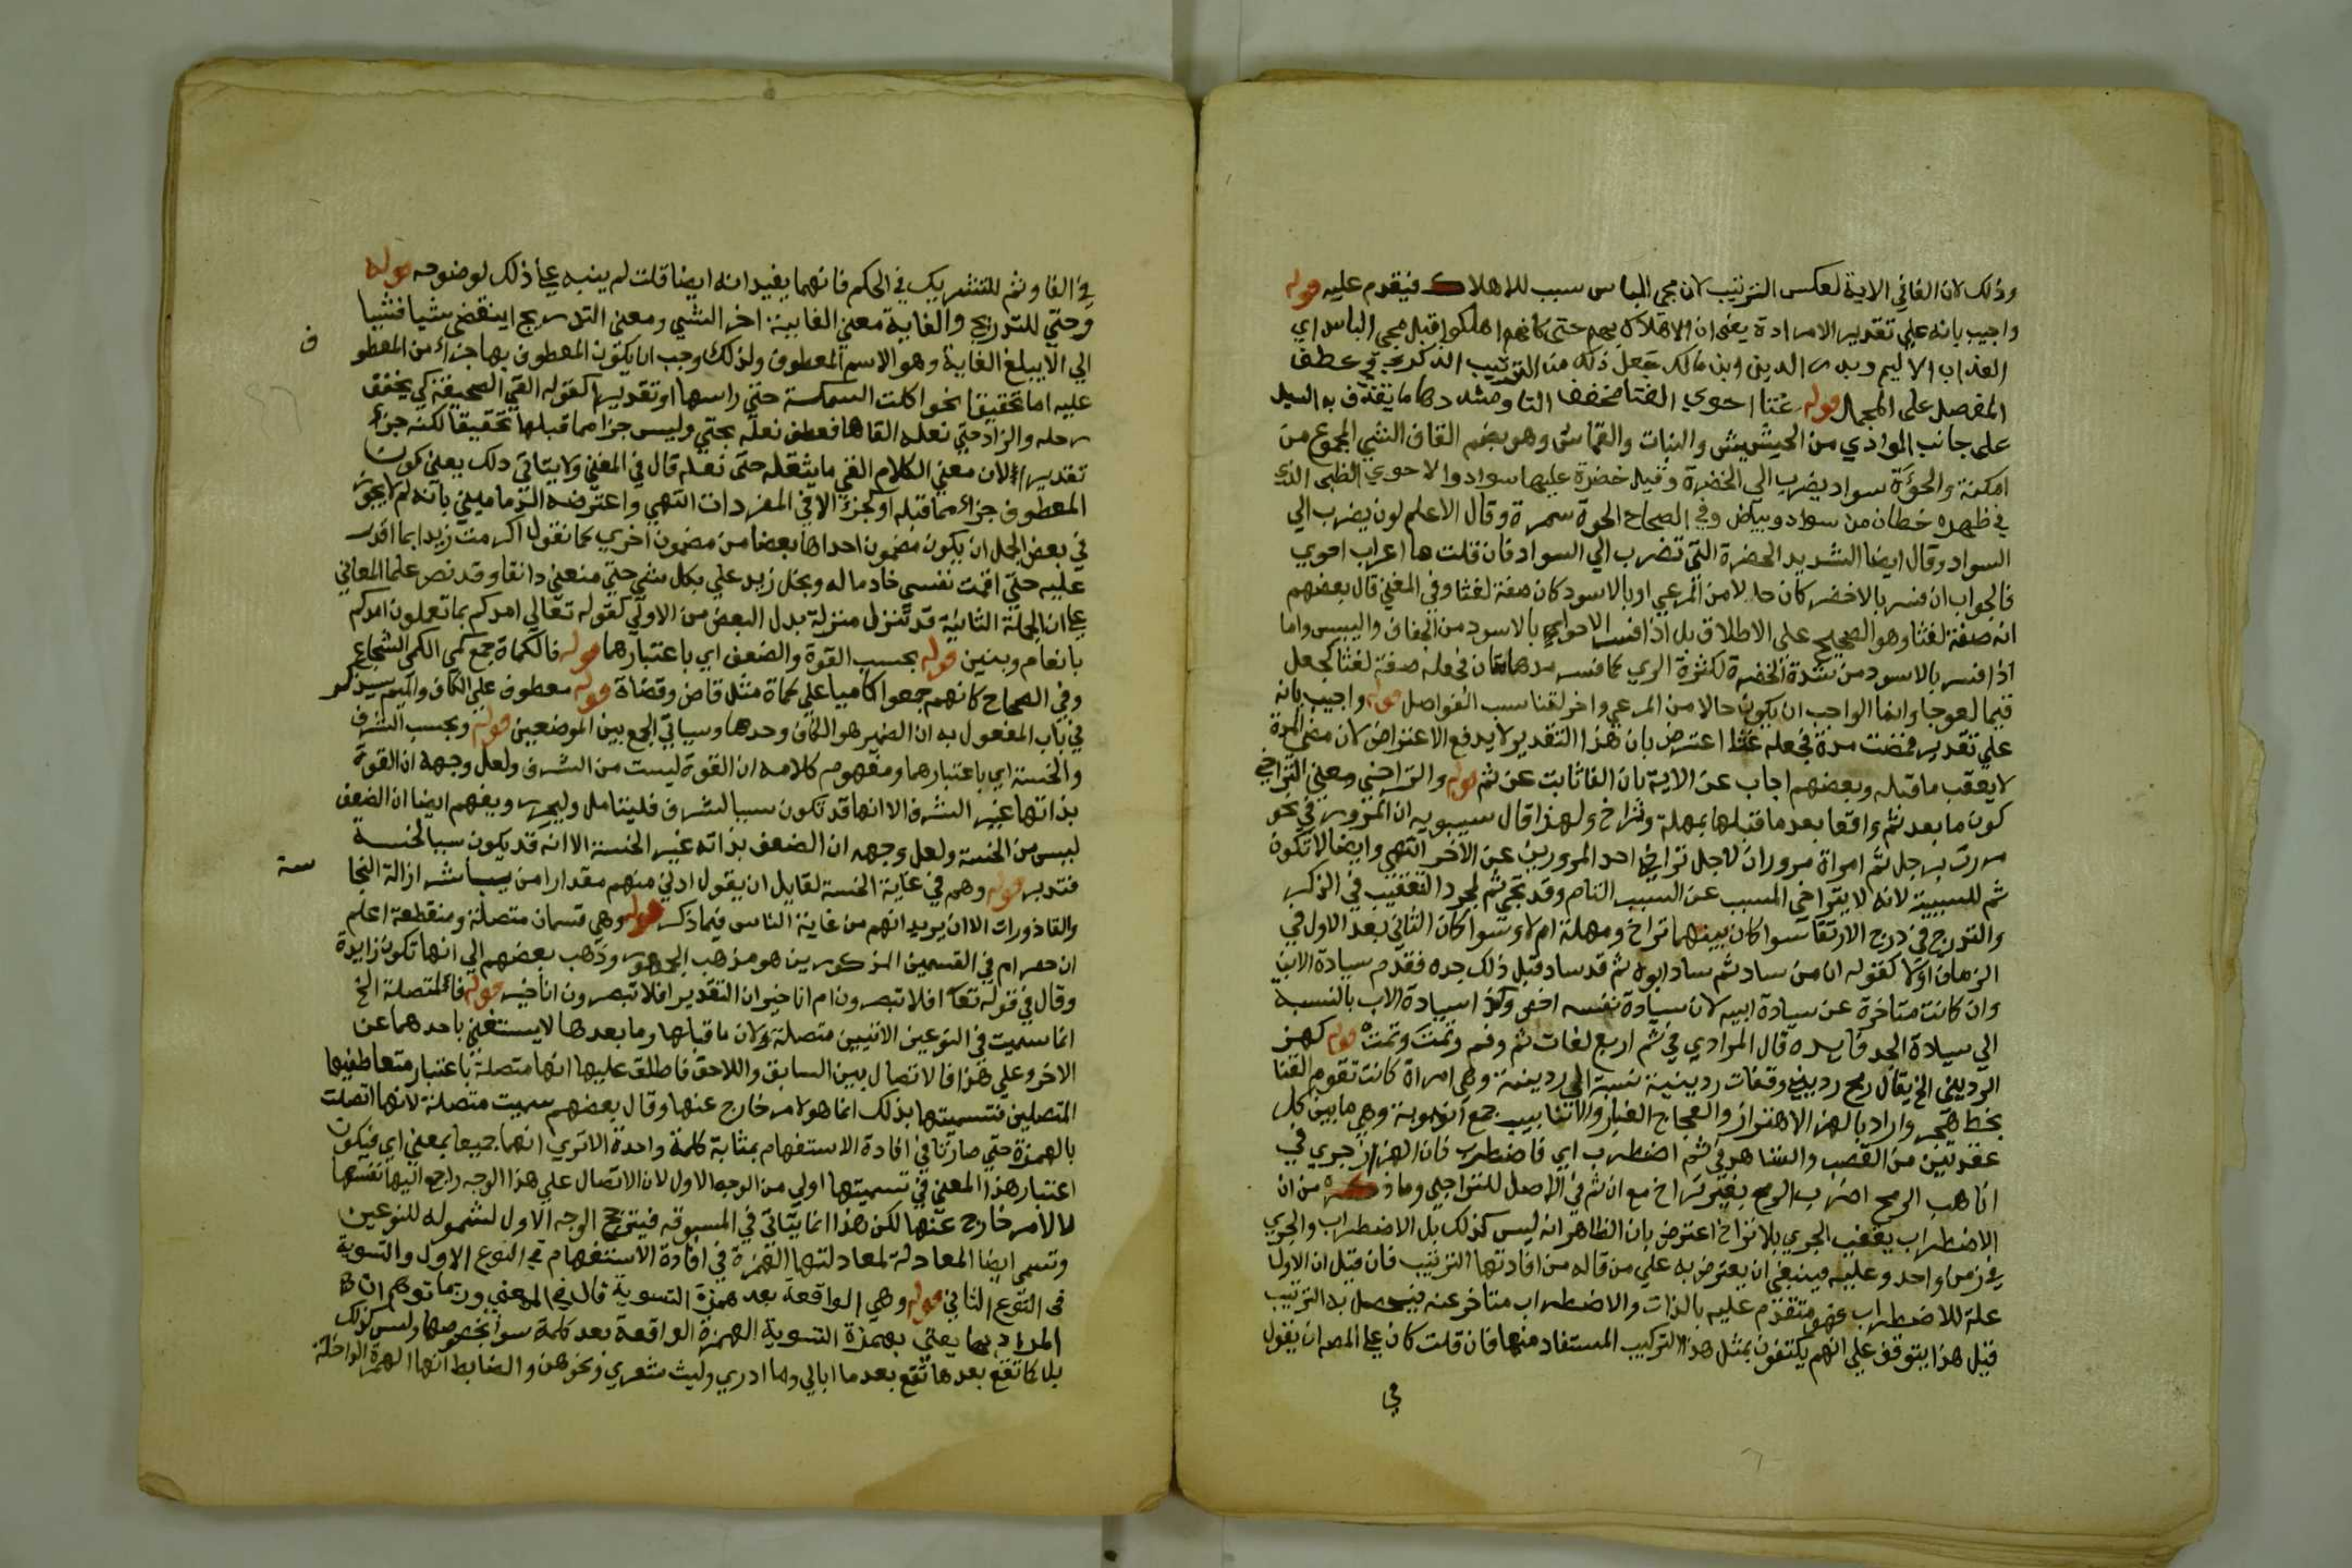 وذلك لان الفا في الاية لعكس الترتيب لان مجي الباس سبب للاهلاك فيقدم عليه قوله
واجيب بانه علي تقدير الارادة يعني ان الاهلاك بهم حتي كانهم اهلكوا قبل مجي الباس اي
العذاب الاليم وبدر الدين ابن مالك جعل ذلك من الترتيب الذكري في عطف
المفصل على المجمل قوله غثا احوي الغثا مخفف الثا ومشددها ما يقذف به السيل
على جانب الوادي من الحشيش والنبات والقماش وهو بضم القاف الشي المجموع من
امكنة والحوة سواد يضرب الي الخضرة وقيل خضرة عليها سواد والاحوي الظبي الذي
في ظهره خطان من سواد وبياض وفي الصحاح الحوة سمرة وقال الاعلم لون يضرب الي
السواد وقال ايضا الشديد الخضرة التي تضرب الي السواد فان قلت ما اعراب احوي
فالجواب ان فسر بالاخضر كان حالا من المرعي او بالاسود كان صفة لغثا وفي المغني قال بعضهم
انه صفة لغثا وهو الصحيح علي الاطلاق بل اذا فسر الاحوي بالاسود من الجفاف واليبس واما
اذا فسر بالاسود من شدة الخضرة لكثرة الري كما فسر مدهامتان فجعله صفة لغثا كجعل
قيما لعوجا وانما الواجب ان يكون حالا من المرعي واخر لتناسب الفواصل قوله واجيب بانه
علي تقدير فمضت مدة فجعله غثا اعترض بان هذا التقدير لا يدفع الاعتراض لان مضي المدة
لا يعقب ما قبله وبعضهم اجاب عن الاية بان الفا نابت عن ثم قوله والتراخي ومعني التراخي
كون ما بعد ثم واقعا بعد ما قبلها بمهلة وتراخ ولهذا قال سيبويه ان المرور في نحو
مررت برجل ثم امراة مروران لاجل تراخي احد المرورين عن الاخر انتهي وايضا لا تكون
ثم للسببية لانه لا يتراخي المسبب عن السبب التام وقد تجي ثم لمجرد التعقيب في الذكر
والتدرج في درج الارتقا سوا كان بينهما تراخ ومهلة ام لا وسوا كان الثاني بعد الاول في
الزمان اولا كقوله ان من ساد ثم ساد ابوه ثم قد ساد قبل ذلك جده فقدم سيادة الابن
وان كانت متاخرة عن سيادة ابيه لان سيادة نفسه اخص وكذا سيادة الاب بالنسبة
الي سيادة الجد فايده قال المرادي في ثم اربع لغات ثم وفم وثمت وثمت قوله كهز
الرديني الخ يقال رمح رديني وقناة ردينية نسبة الي ردينة وهي امراة كانت تقوم القنا
بخط هجر واراد بالهز الاهتزاز والعجاج الغبار والانابيب جمع انبوبة وهي ما بين كل
عقدتين من القصب والشاهد في ثم اضطرب اي فاضطرب فان الهز اذ جري في
انابيب الرمح اضطرب الرمح بغير تراخ مع ان ثم في الاصل للتراخي وما ذكره من ان
الاضطراب يعقب الجري بلا تراخ اعترض بان الظاهر انه ليس كذلك بل الاضطراب والجري
في زمن واحد وعليه فينبغي ان يعترض به علي من قاله من افادتها الترتيب فان قيل ان الاول
علة للاضطراب فهو متقدم عليه بالذات والاضطراب متاخر عنه فيحصل به الترتيب
قيل هذا يتوقف علي انهم يكتفون بمثل هذا التركيب المستفاد منها فان قلت كان علي المص ان يقول
في
في الفا وثم للتشريك في الحكم فانهما يفيدانه ايضا قلت لم ينبه علي ذلك لوضوحه قوله
وحتي للتدريج والغاية معني الغاية اخر الشي ومعني التدريج ان ينقضي شيا فشيا
الي ان يبلغ الغاية وهو الاسم المعطوف ولذلك وجب ان يكون المعطوف بها جزا من المعطو
ف
عليه اما تحقيقا نحو اكلت السمكة حتي راسها او تقديرا كقوله القي الصحيفة كي يخفف
رحله والزاد حتي نعله القاها فعطف نعله بحتي وليس جزا مما قبلها تحقيقا لكنه جزء
تقديرا لان معني الكلام القي ما يثقله حتي نعله قال في المغني ولا يتاتي ذلك يعني كون
المعطوف جزا مما قبله او كجزء الا في المفردات انتهي واعترضه الدماميني بانه لم لا يجوز
في بعض الجمل ان يكون مضمون احداها بعضا من مضمون اخري كما تقول اكرمت زيدا بما اقدر
عليه حتي اقمت نفسي خادما له وبخل زيد علي بكل شي حتي منعني دانقا وقد نص علما المعاني
علي ان الجملة الثانية قد تنزل منزلة بدل البعض من الاولي كقوله تعالي امدكم بما تعلمون امدكم
بانعام وبنين قوله بحسب القوة والضعف اي باعتبارهما قوله فالكماة جمع كمي الكمي الشجاع
وفي الصحاح كانهم جمعوا كاميا علي كماة مثل قاض وقضاة قوله معطوف علي الكاف والميم سيذكر
في باب المفعول به ان الضمير هو الكاف وحدها وسياتي الجمع بين الموضعين قوله وبحسب الشرف
والخسة اي باعتبارهما ومفهوم كلامه ان القوة ليست من الشرف ولعل وجهه ان القوة
بذاتها غير الشرف الا انها قد تكون سببا للشرف فليتامل وليحرر ويفهم ايضا ان الضعف
ليس من الخسة ولعل وجهه ان الضعف بذاته غير الخسة الا انه قد يكون سببا لخسة
فتدبر قوله وهم في غاية الخسة لقايل ان يقول ادني منهم مقدارا من يباشر ازالة النجا
سة
والقاذورات الا ان يريد انهم من غاية الناس فيما ذكر قوله وهي قسمان متصلة ومنقطعة اعلم
ان حصر ام في القسمين المذكورين هو مذهب الجمهور وذهب بعضهم الي انها تكون زايدة
وقال في قوله تعا افلا تبصرون ام انا خير ان التقدير افلا تبصرون انا خير قوله فالمتصلة الخ
انما سميت في النوعين الاتيين متصلة لان ما قبلها وما بعدها لا يستغني باحدهما عن
الاخر وعلي هذا فالاتصال بين السابق واللاحق فاطلق عليها انها متصلة باعتبار متعاطفيها
المتصلين فتسميتها بذلك انما هو لامر خارج عنها وقال بعضهم سميت متصلة لانها اتصلت
بالهمزة حتي صارتا في افادة الاستفهام بمثابة كلمة واحدة الا تري انهما جميعا بمعني اي فيكون
اعتبار هذا المعني في تسميتها اولي من الوجه الاول لان الاتصال علي هذا الوجه راجع اليها نفسها
لا لامر خارج عنها لكن هذا انما يتاتي في المسبوقه فيترجح الوجه الاول لشموله للنوعين
وتسمي ايضا المعادلة لمعادلتها الهمزة في افادة الاستفهام في النوع الاول والتسوية
في النوع الثاني قوله وهي الواقعة بعد همزة التسوية قال في المغني وربما توهم ان
المراد بها يعني بهمزة التسوية الهمزة الواقعة بعد كلمة سوا بخصوصها وليس كذلك
بل كما تقع بعدها تقع بعد ما ابالي وما ادري وليت شعري ونحوهن والضابط انها الهمزة الداخلة